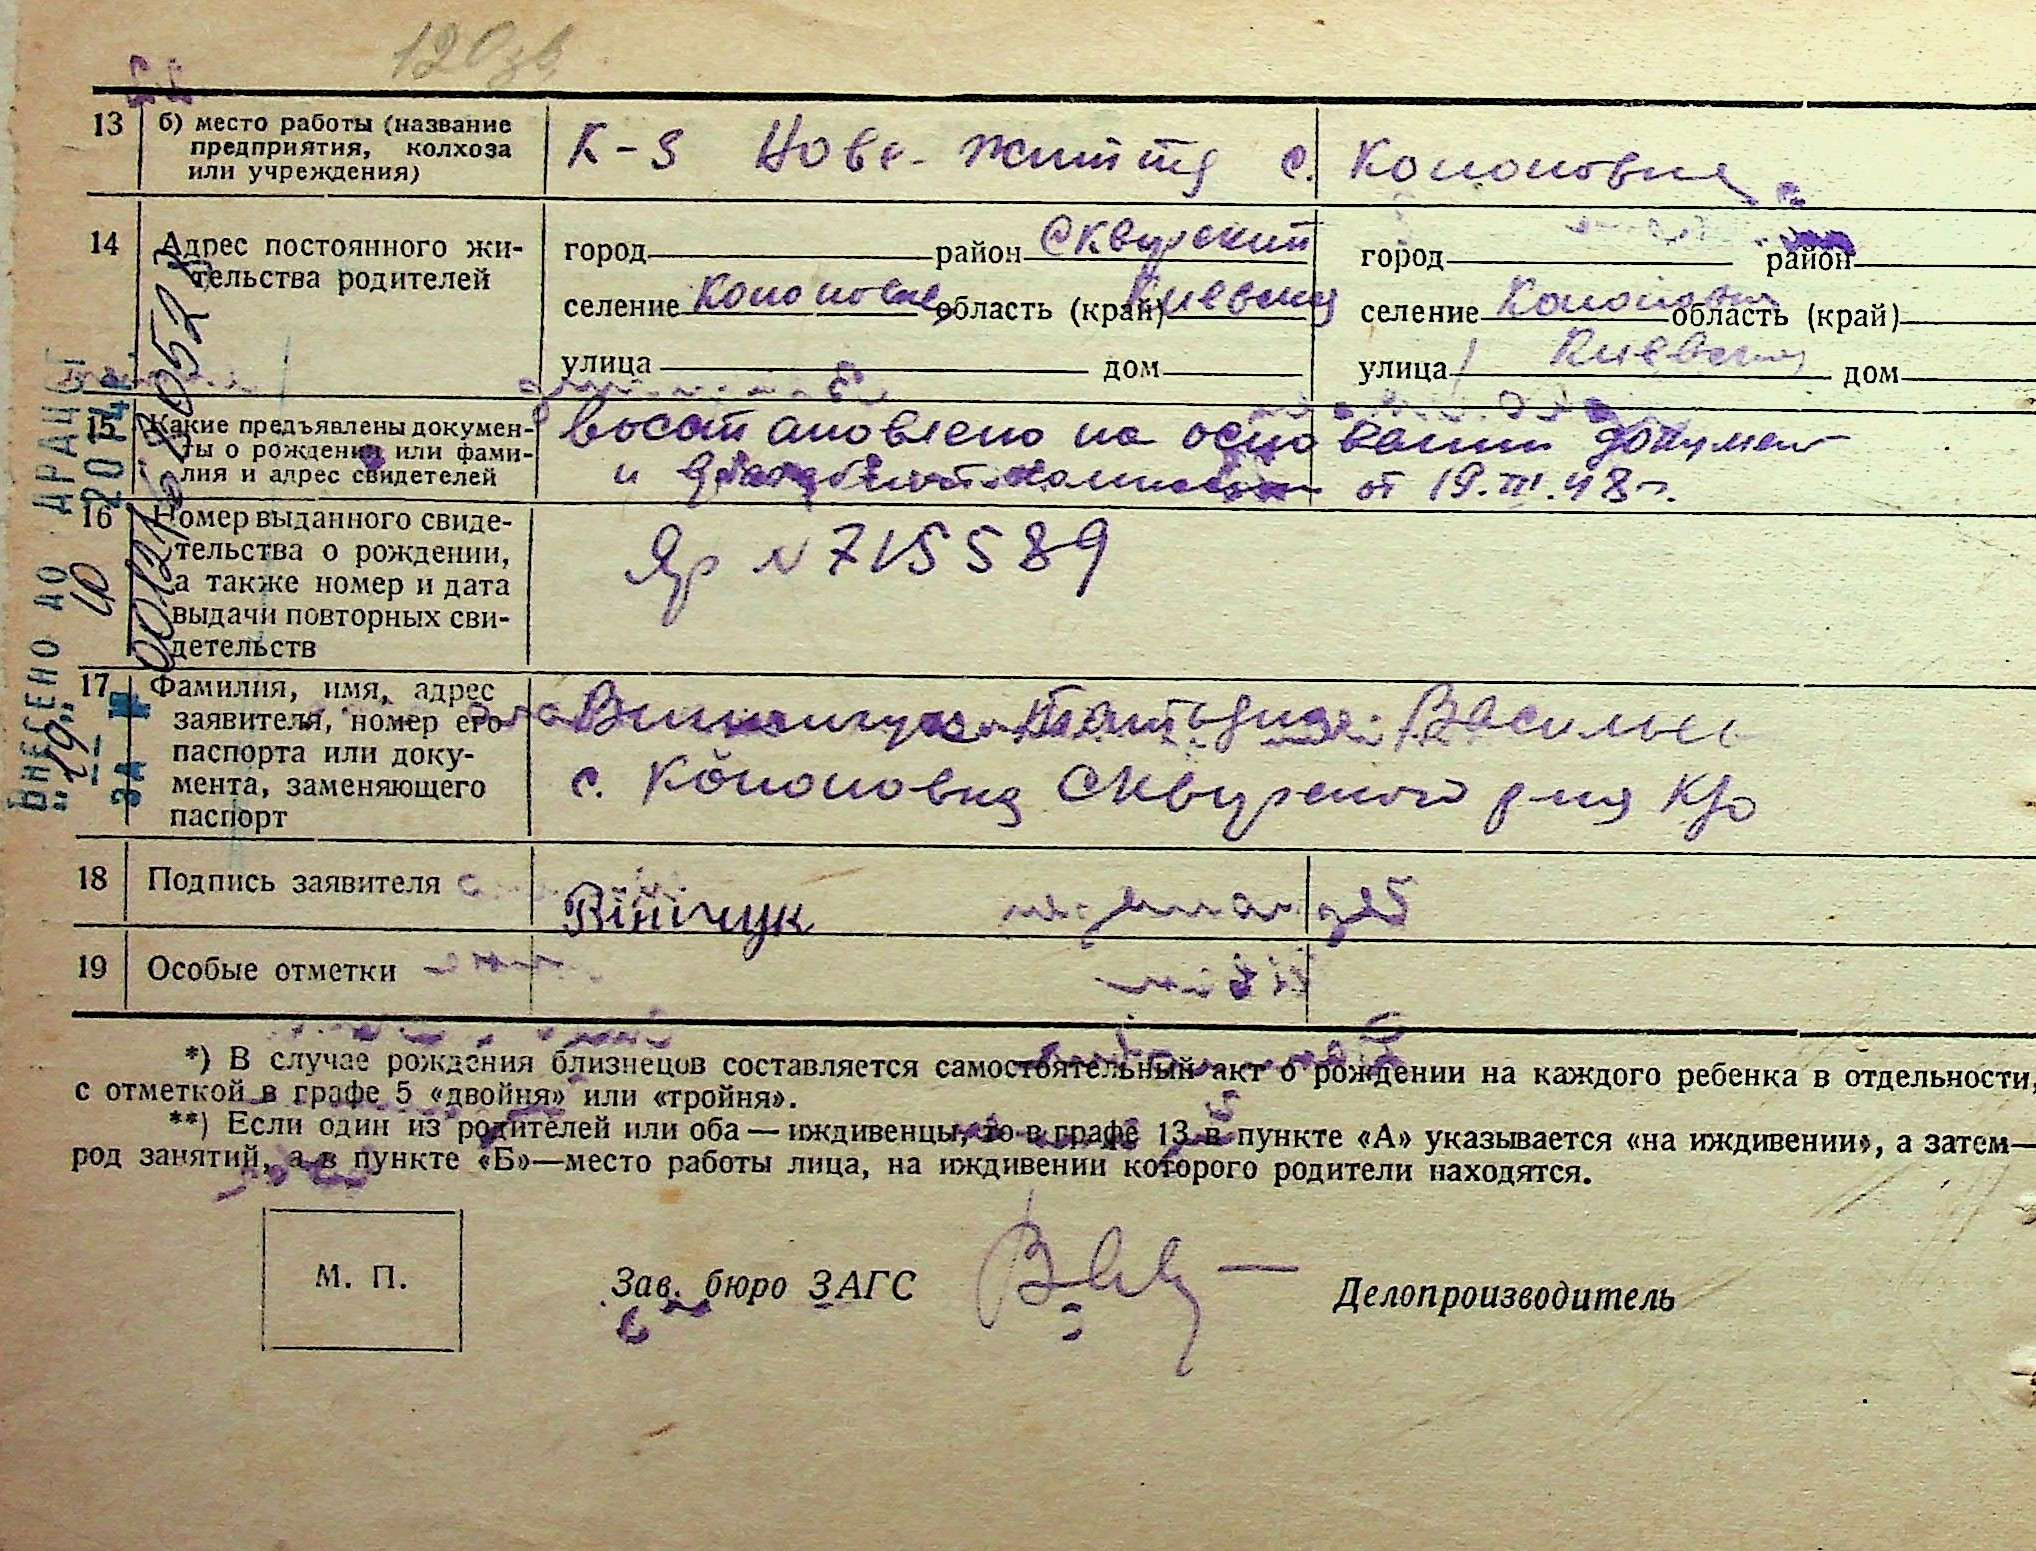 120зв
13 б) место работы (название
предприятия, колхоза
или учреждения)
К-з Нове життя с. Кононовка
14 Адрес постоянного жи-
тельства родителей
город район Сквирский город район
селение Кононовка область (край) Киевская селение Кононовка область (край)
улица дом улица Киевская дом
15 Какие предъявлены докумен-
ты о рождении или фами-
лия и адрес свидетелей
восстановлено на основании документ
и от 19.III.48 г.
16 Номер выданного свиде-
тельства о рождении,
а также номер и дата
выдачи повторных сви-
детельств
Яр N 715589
17 Фамилия, имя, адрес
заявителя, номер его
паспорта или доку-
мента, заменяющего
паспорт
Василье
с. Кононовка Сквирского р-на К/о
18 Подпись заявителя
Вінічук
19 Особые отметки
*) В случае рождения близнецов составляется самостоятельный акт о рождении на каждого ребенка в отдельности,
с отметкой в графе 5 «двойня» или «тройня».
**) Если один из родителей или оба — иждивенцы, то в графе 13 в пункте «А» указывается «на иждивении», а затем—
род занятий, а в пункте «Б»—место работы лица, на иждивении которого родители находятся.
М. П.
Зав. бюро ЗАГС
Делопроизводитель
ВНЕСЕНО ДО ДРАЦСГ
"19" 10 20 р.
ЗА №